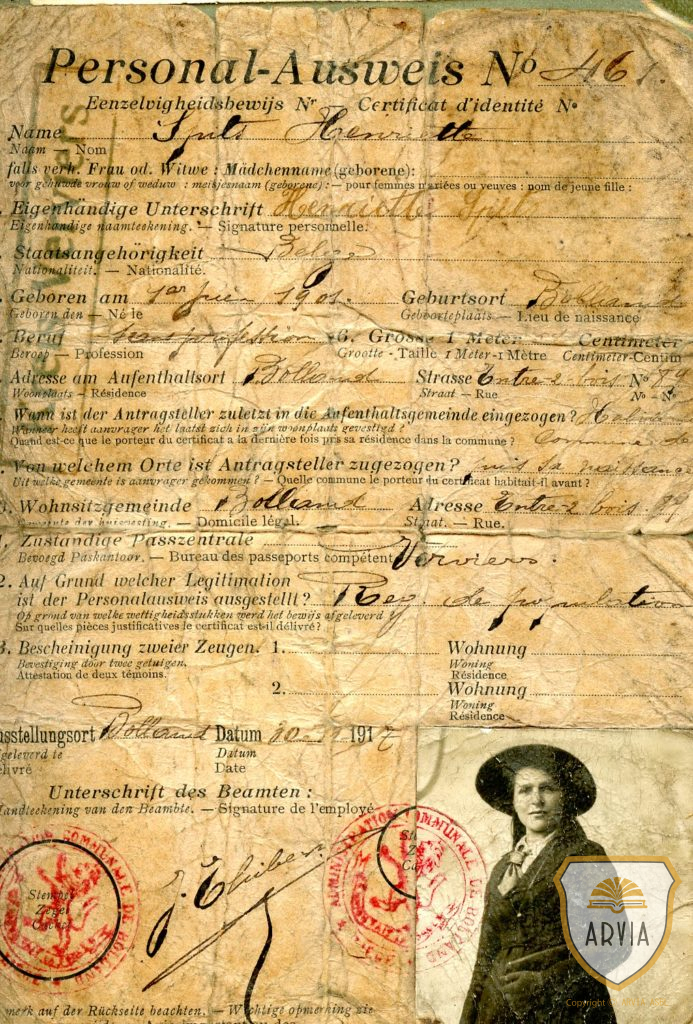 Personal-Ausweis No 461.
Eenzelvigheidsbewijs Nr Certificat d'identité No
Name Spits Henriette
Naam — Nom
falls verh. Frau od. Witwe : Mädchenname (geborene):
voor gehuwde vrouw of weduw : meisjesnaam (geborene) : — pour femmes mariées ou veuves : nom de jeune fille :
Eigenhändige Unterschrift Henriette
Eigenhandige naamteekening. — Signature personnelle.
Staatsangehörigkeit Belge
Nationaliteit. — Nationalité.
Geboren am 1er juin 1901. Geburtsort Bolland
Geboren den — Né le Geboorteplaats — Lieu de naissance
Beruf Sans profession 6. Grosse 1 Meter Centimeter
Beroep — Profession Grootte - Taille 1 Meter - 1 Mètre Centimeter-Centim
Adresse am Aufenthaltsort Bolland Strasse Entre-2 bois No 89
Woonplaats — Résidence Straat — Rue No - No
Wann ist der Antragsteller zuletzt in die Aufenthaltsgemeinde eingezogen?
Wanneer heeft aanvrager het laatst zich in zijn woonplaats gevestigd ?
Quand est-ce que le porteur du certificat a la dernière fois pris sa résidence dans la commune ? Commune de
Von welchem Orte ist Antragsteller zugezogen? puis sa naissance
Uit welke gemeente is aanvrager gekommen ? — Quelle commune le porteur du certificat habitait-il avant ?
Wohnsitzgemeinde Bolland Adresse Entre-2 bois. 89
— Domicile légal. Straat. — Rue.
Zuständige Passzentrale
Bevoegd Paskantoor. — Bureau des passeports compétent Verviers.
2. Auf Grund welcher Legitimation
ist der Personalausweis ausgestellt? Reg. de population
Op grond van welke wettigheidsstukken werd het bewijs afgeleverd
Sur quelles pièces justificatives le certificat est-il délivré?
3. Bescheinigung zweier Zeugen. 1. Wohnung
Bevestiging door twee getuigen. Woning
Attestation de deux témoins. Résidence
2. Wohnung
Woning
Résidence
usstellungsort Bolland Datum 1917
fgeleverd te Datum
élivré Date
Unterschrift des Beamten:
Handteekening van den Beambte. — Signature de l'employé
ADMINISTRATION COMMUNALE DE BOLLAND
Stempel
Zegel
Cachet
merk auf der Rückseite beachten. — Wichtige opmerking zie
ARVIA
Copyright